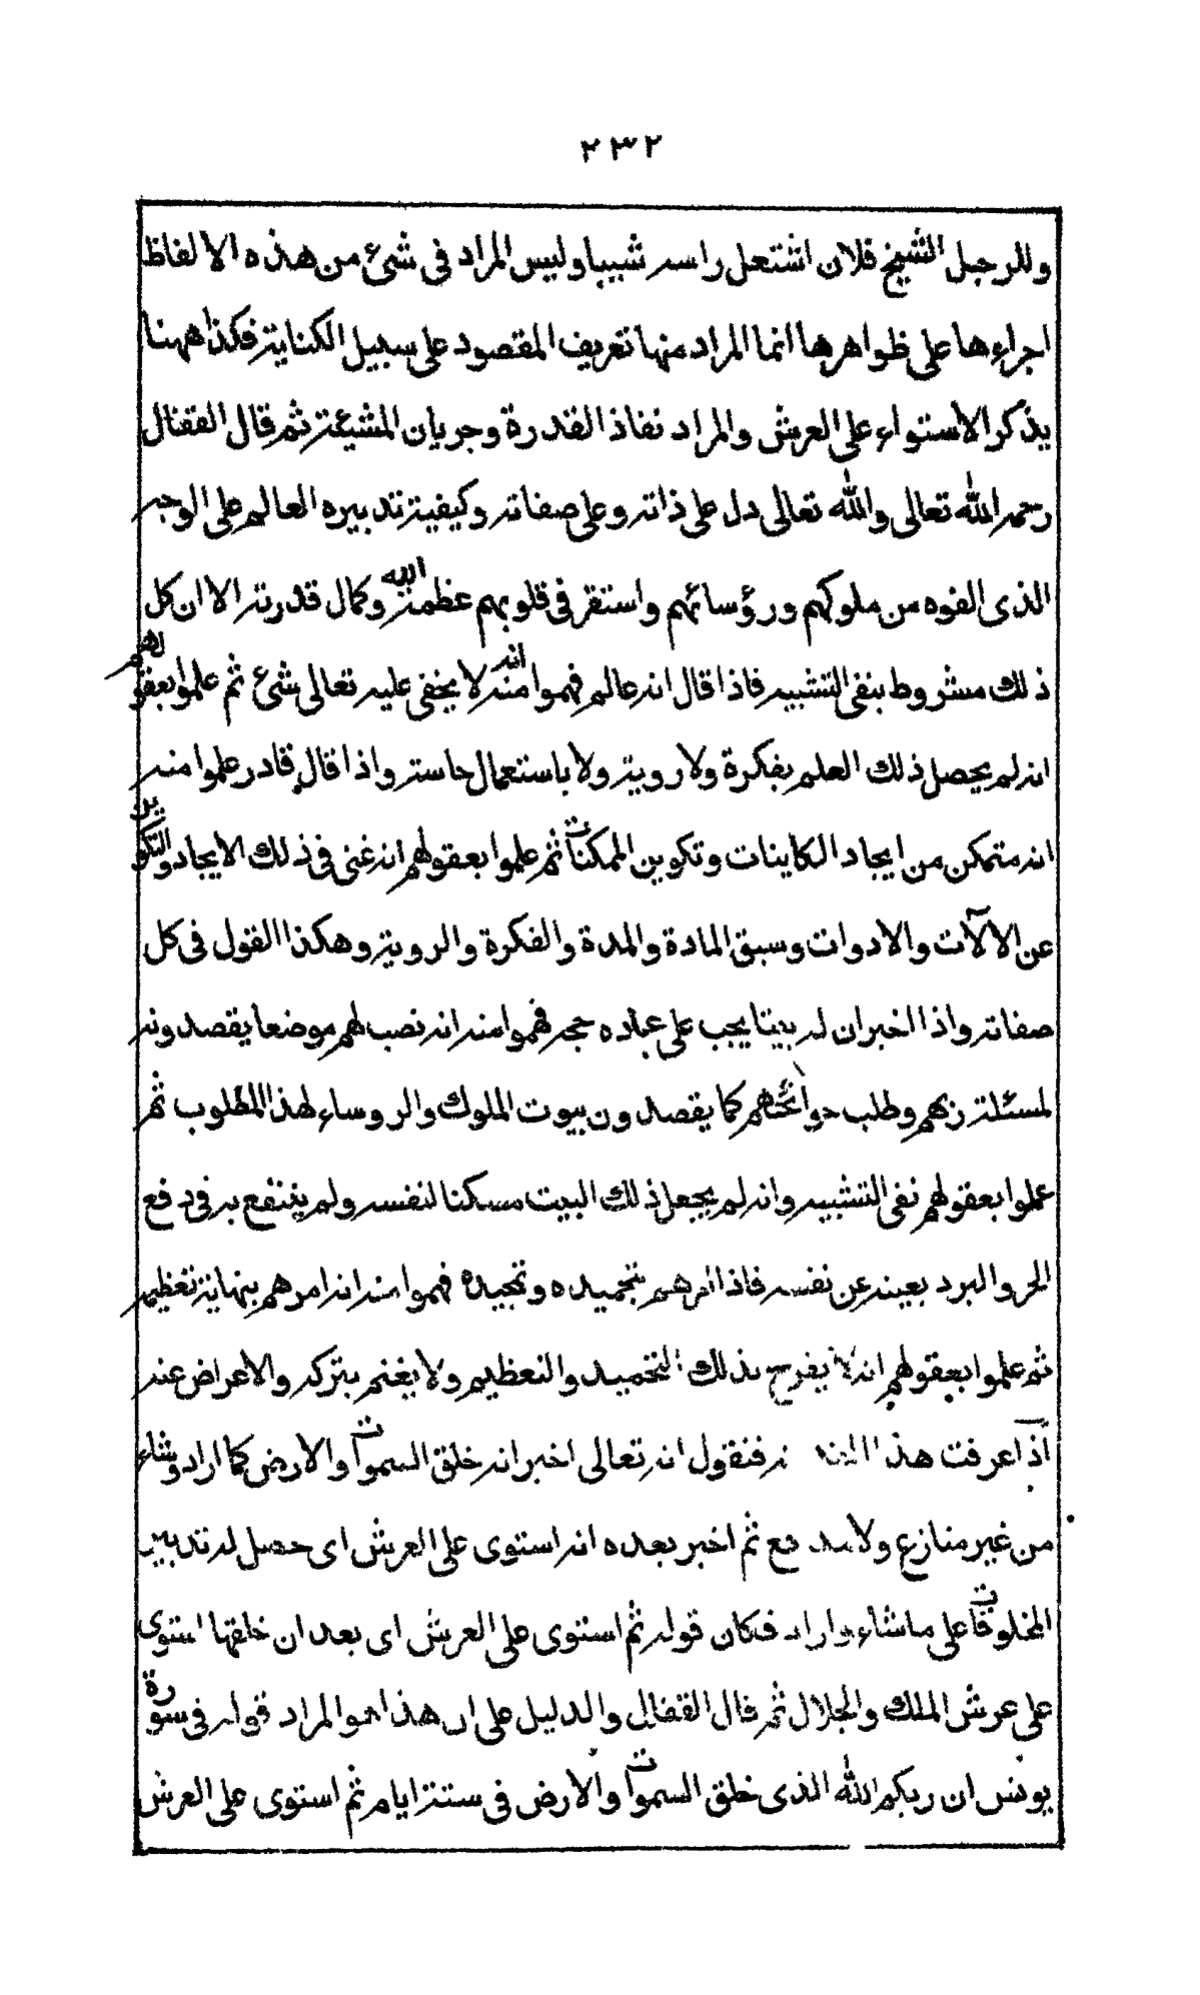 ٢٣٢
وللرجل الشيخ فلان اشتعل راسه شيبا وليس المراد فى شئ من هذه الالفاظ
اجراءها على ظواهرها انما المراد منها تعريف المقصود على سبيل الكناية فكذا ههنا
يذكر الاستواء على العرش والمراد نفاذ القدرة وجريان المشيئة ثم قال القفال
رحمه الله تعالى والله تعالى دل على ذاته وعلى صفاته وكيفية تدبيره العالم على الوجه
الذى الفوه من ملوكهم ورؤسائهم واستقر فى قلوبهم عظمة الله وكمال قدرته الا ان كل
ذلك مشروط بنفى التشبيه فاذا قال انه عالم فهموا منه انه لا يخفى عليه تعالى شئ ثم علموا بعقولهم
انه لم يحصل ذلك العلم بفكرة ولا روية ولا باستعمال حاسة واذا قال قادر علموا منه
انه متمكن من ايجاد الكاينات وتكوين الممكنات ثم علموا بعقولهم انه غنى فى ذلك الايجاد والتكوين
عن الآلات والادوات وسبق المادة والمدة والفكرة والروية وهكذا القول فى كل
صفاته واذا اخبر ان له بيتا يجب على عباده حجه فهموا منه انه نصب لهم موضعا يقصدونه
لمسئلة ربهم وطلب حوائجهم كما يقصدون بيوت الملوك والروساء لهذا المطلوب ثم
علموا بعقولهم نفى التشبيه وانه لم يجعل ذلك البيت مسكنا لنفسه ولم ينتفع به فى دفع
الحر والبرد بعينه عن نفسه فاذا امرهم بتحميده وتمجيده فهموا منه انه امرهم بنهاية تعظيمه
ثم علموا بعقولهم انه لا يفرح بذلك التحميد والتعظيم ولا يغتم بتركه والاعراض عنه
اذا عرفت هذا فنقول انه تعالى اخبر انه خلق السموات والارض كما اراد وشاء
من غير منازع ولا مدافع ثم اخبر بعده انه استوى على العرش اى حصل له تدبير
المخلوقات على ما شاء واراد فكان قوله ثم استوى على العرش اى بعد ان خلقها استوى
على عرش الملك والجلال ثم قال القفال والدليل على ان هذا هو المراد قوله فى سورة
يونس ان ربكم الله الذى خلق السموات والارض فى ستة ايام ثم استوى على العرش